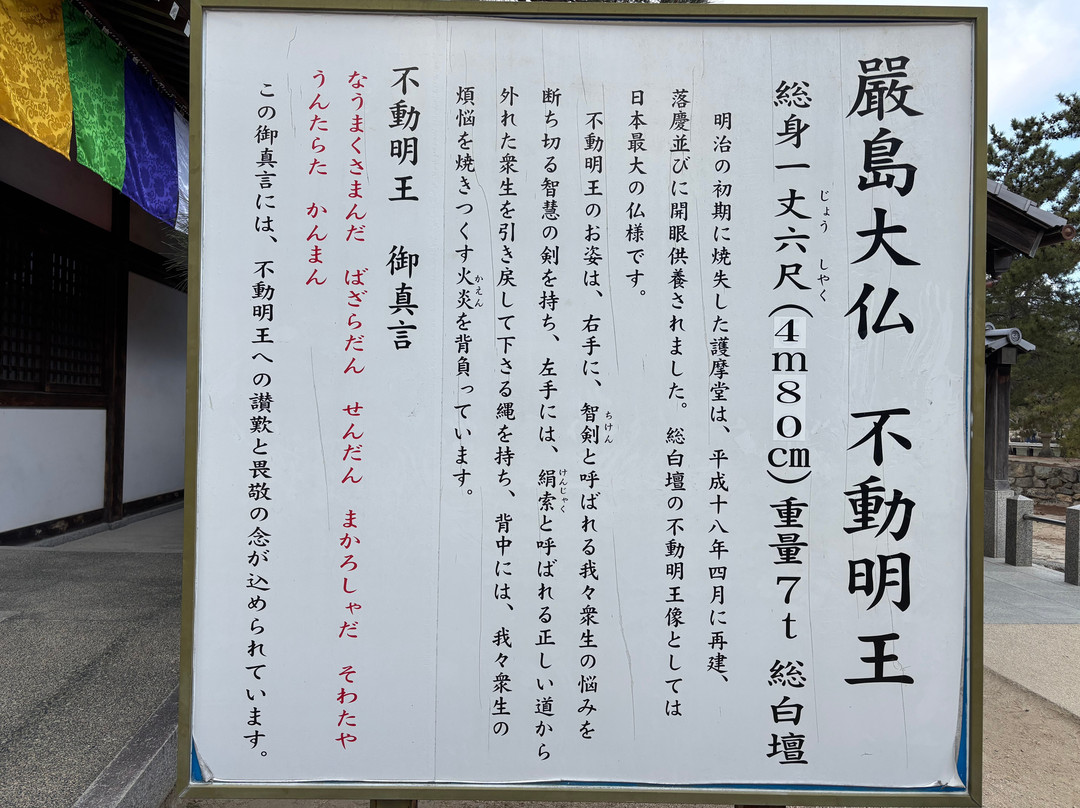 嚴島大仏　不動明王
総身一丈六尺(4m80cm)重量7t 総白壇
じょう　しゃく
明治の初期に焼失した護摩堂は、平成十八年四月に再建、
落慶並びに開眼供養されました。総白壇の不動明王像としては
日本最大の仏様です。
不動明王のお姿は、右手に、智剣と呼ばれる我々衆生の悩みを
ちけん
断ち切る智慧の剣を持ち、左手には、絹索と呼ばれる正しい道から
けんじゃく
外れた衆生を引き戻して下さる縄を持ち、背中には、我々衆生の
煩悩を焼きつくす火炎を背負っています。
かえん
不動明王　御真言
なうまくさまんだ　ばざらだん　せんだん　まかろしゃだ　そわたや
うんたらた　かんまん
この御真言には、不動明王への讃歎と畏敬の念が込められています。